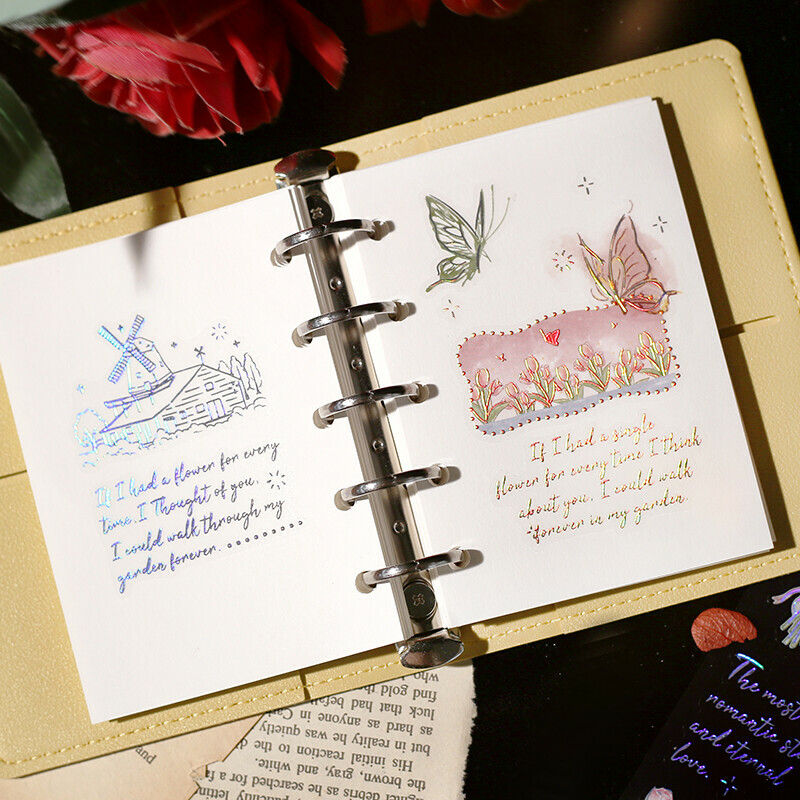 If I had a flower for every
time. I Thought of you.
I could walk through my
garden forever.
If I had a single
flower for every time I think
about you, I could walk
forever in my garden.
The most
romantic
and eternal
love.
and
who
find the gold
luck that had befall
as hard as anyone in Car
but in reality he was quietly
His initial reaction to the
the brown, gray, and white.
as he searched for a fa